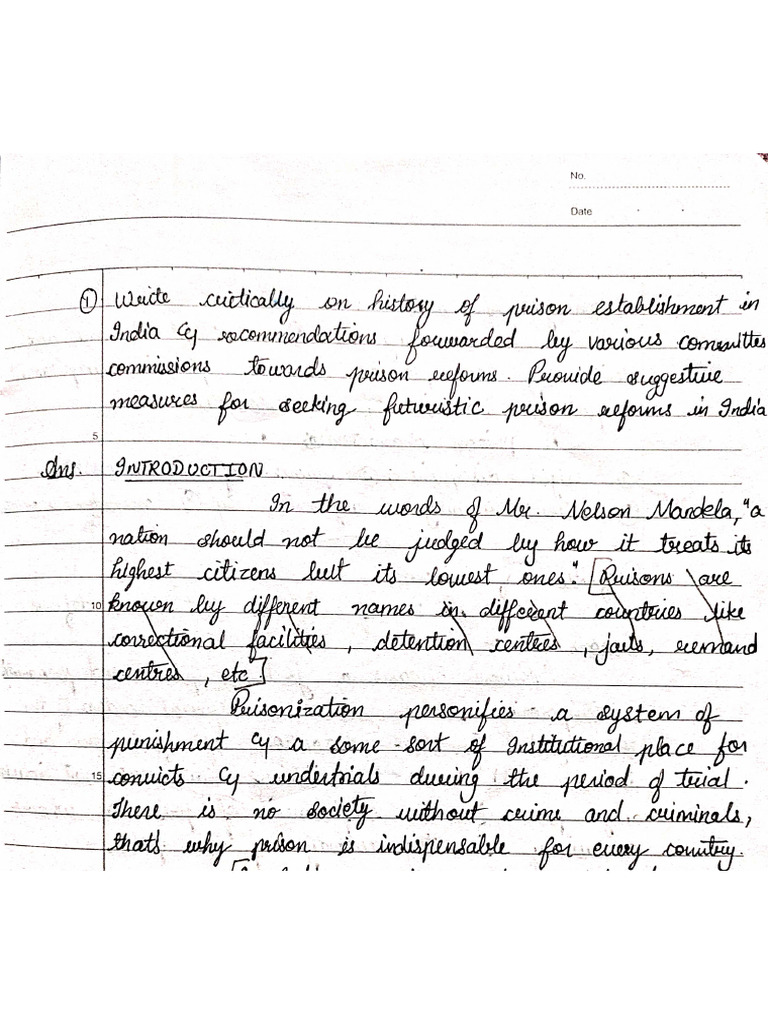 No.
Date
① Write critically on history of prison establishment in
India & recommendations forwarded by various committes
commissions towards prison reforms. Provide suggestive
measures for seeking futuristic prison reforms in India
5
Ans. INTRODUCTION
In the words of Mr. Nelson Mandela, "a
nation should not be judged by how it treats its
highest citizens but its lowest ones". [Prisons are
10 known by different names in different countries like
correctional facilities, detention centres, jails, remand
centres, etc]
Prisonization personifies a system of
punishment & a some sort of Institutional place for
15 convicts & undertrials during the period of trial.
There is no society without crime and criminals,
that's why prison is indispensable for every country.